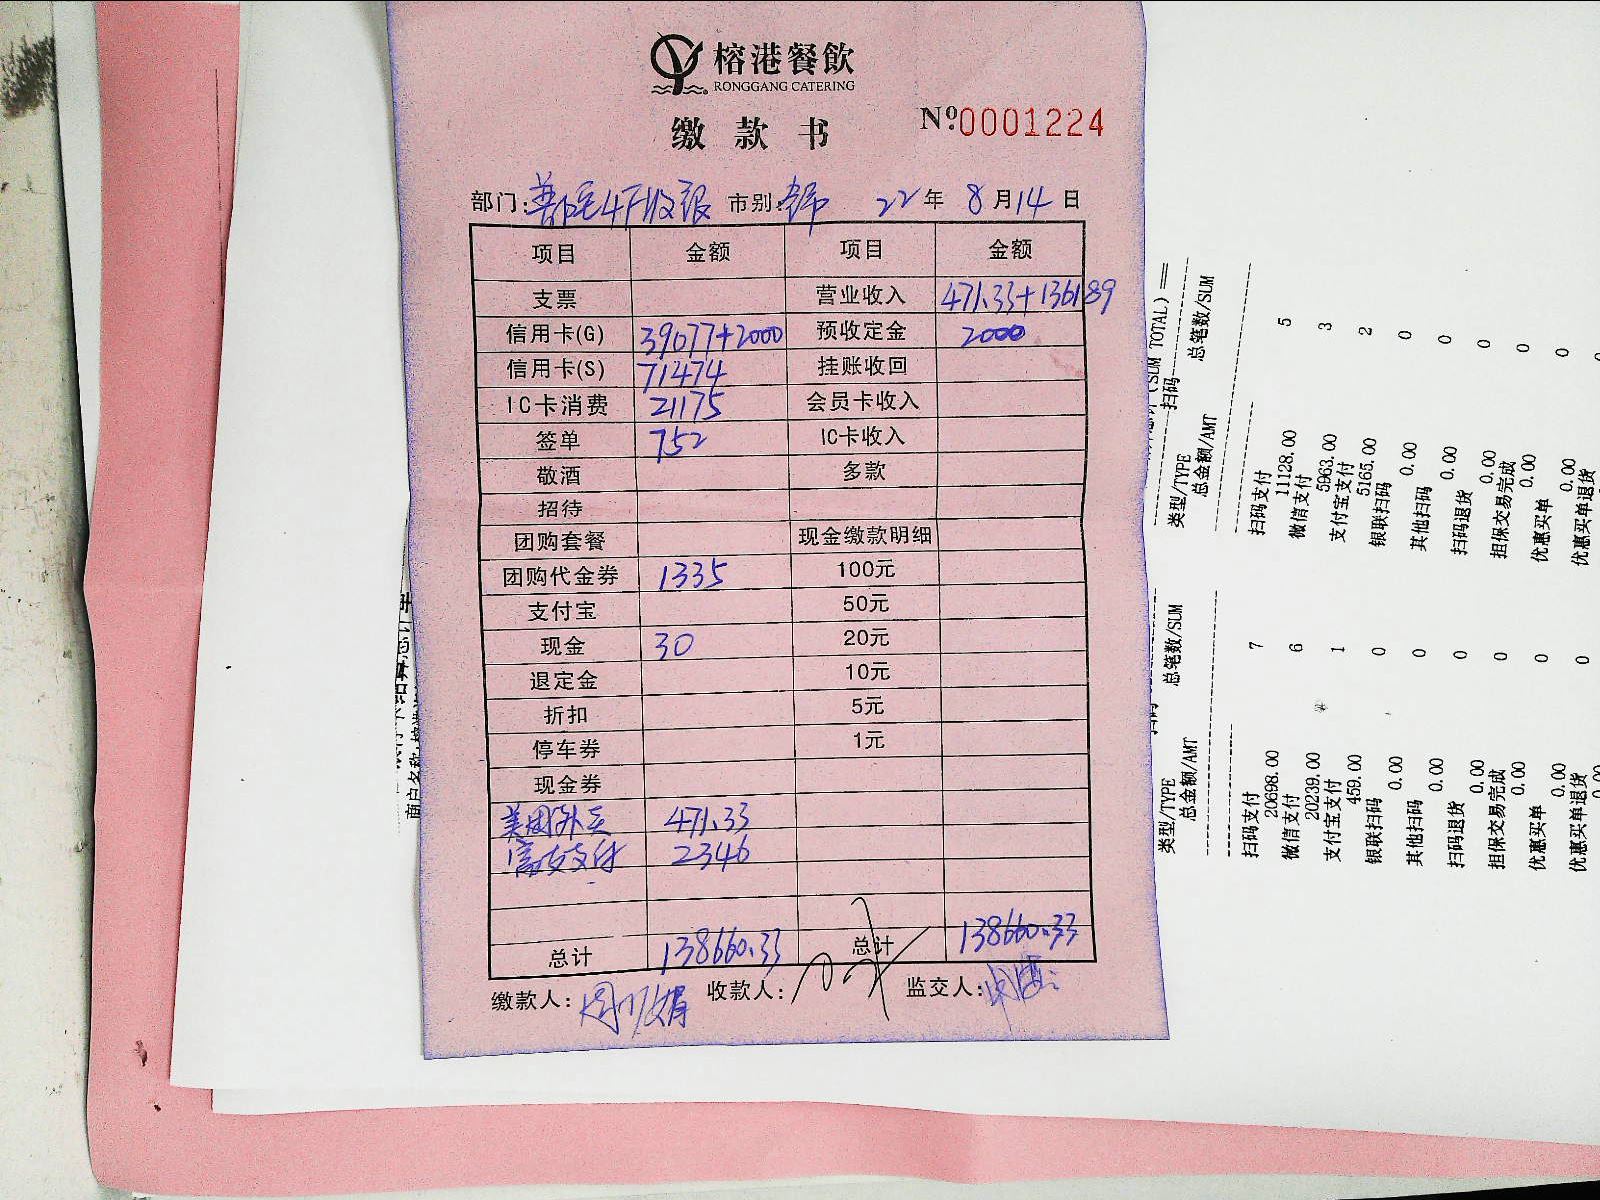 榕港餐飲
RONGGANG CATERING
缴款书
Nº:0001224
部门: 4F收银 市别: 22年 8月14日
项目 金额 项目 金额
支票 营业收入 471.33+136189
信用卡(G) 39077+2000 预收定金 2000
信用卡(S) 71474 挂账收回
IC卡消费 21175 会员卡收入
签单 752 IC卡收入
敬酒 多款
招待
团购套餐 现金缴款明细
团购代金券 1335 100元
支付宝 50元
现金 30 20元
退定金 10元
折扣 5元
停车券 1元
现金券
美团外卖 471.33
支付 2346
总计 138660.33 总计 138660.33
缴款人: 收款人: 监交人:
(SUM TOTAL)
扫码
类型/TYPE 总笔数/SUM
总金额/AMT
扫码支付 5
11128.00
微信支付 3
5963.00
支付宝支付 2
5165.00
银联扫码 0
0.00
其他扫码 0
0.00
扫码退货 0
0.00
担保交易完成 0
0.00
优惠买单 0
0.00
优惠买单退货
扫码
类型/TYPE 总笔数/SUM
总金额/AMT
扫码支付 7
20698.00
微信支付 6
20239.00
支付宝支付 1
459.00
银联扫码 0
0.00
其他扫码 0
0.00
扫码退货 0
0.00
担保交易完成 0
0.00
优惠买单 0
0.00
优惠买单退货 0
0.00
商户名称